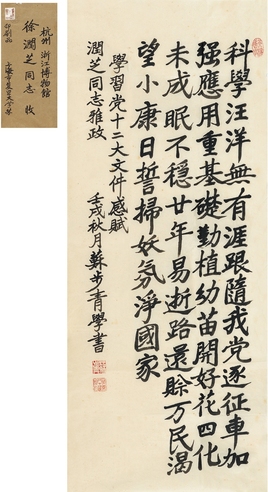 科學汪洋無有涯跟隨我党逐征車加
强應用重基礎勤植幼苗開好花四化
未成眠不穩廿年易逝路還賒万民渴
望小康日誓掃妖氛淨國家
學習党十二大文件感賦
潤芝同志雅政
壬戌秋月蘇步青學書
杭州浙江博物館
徐潤芝同志收